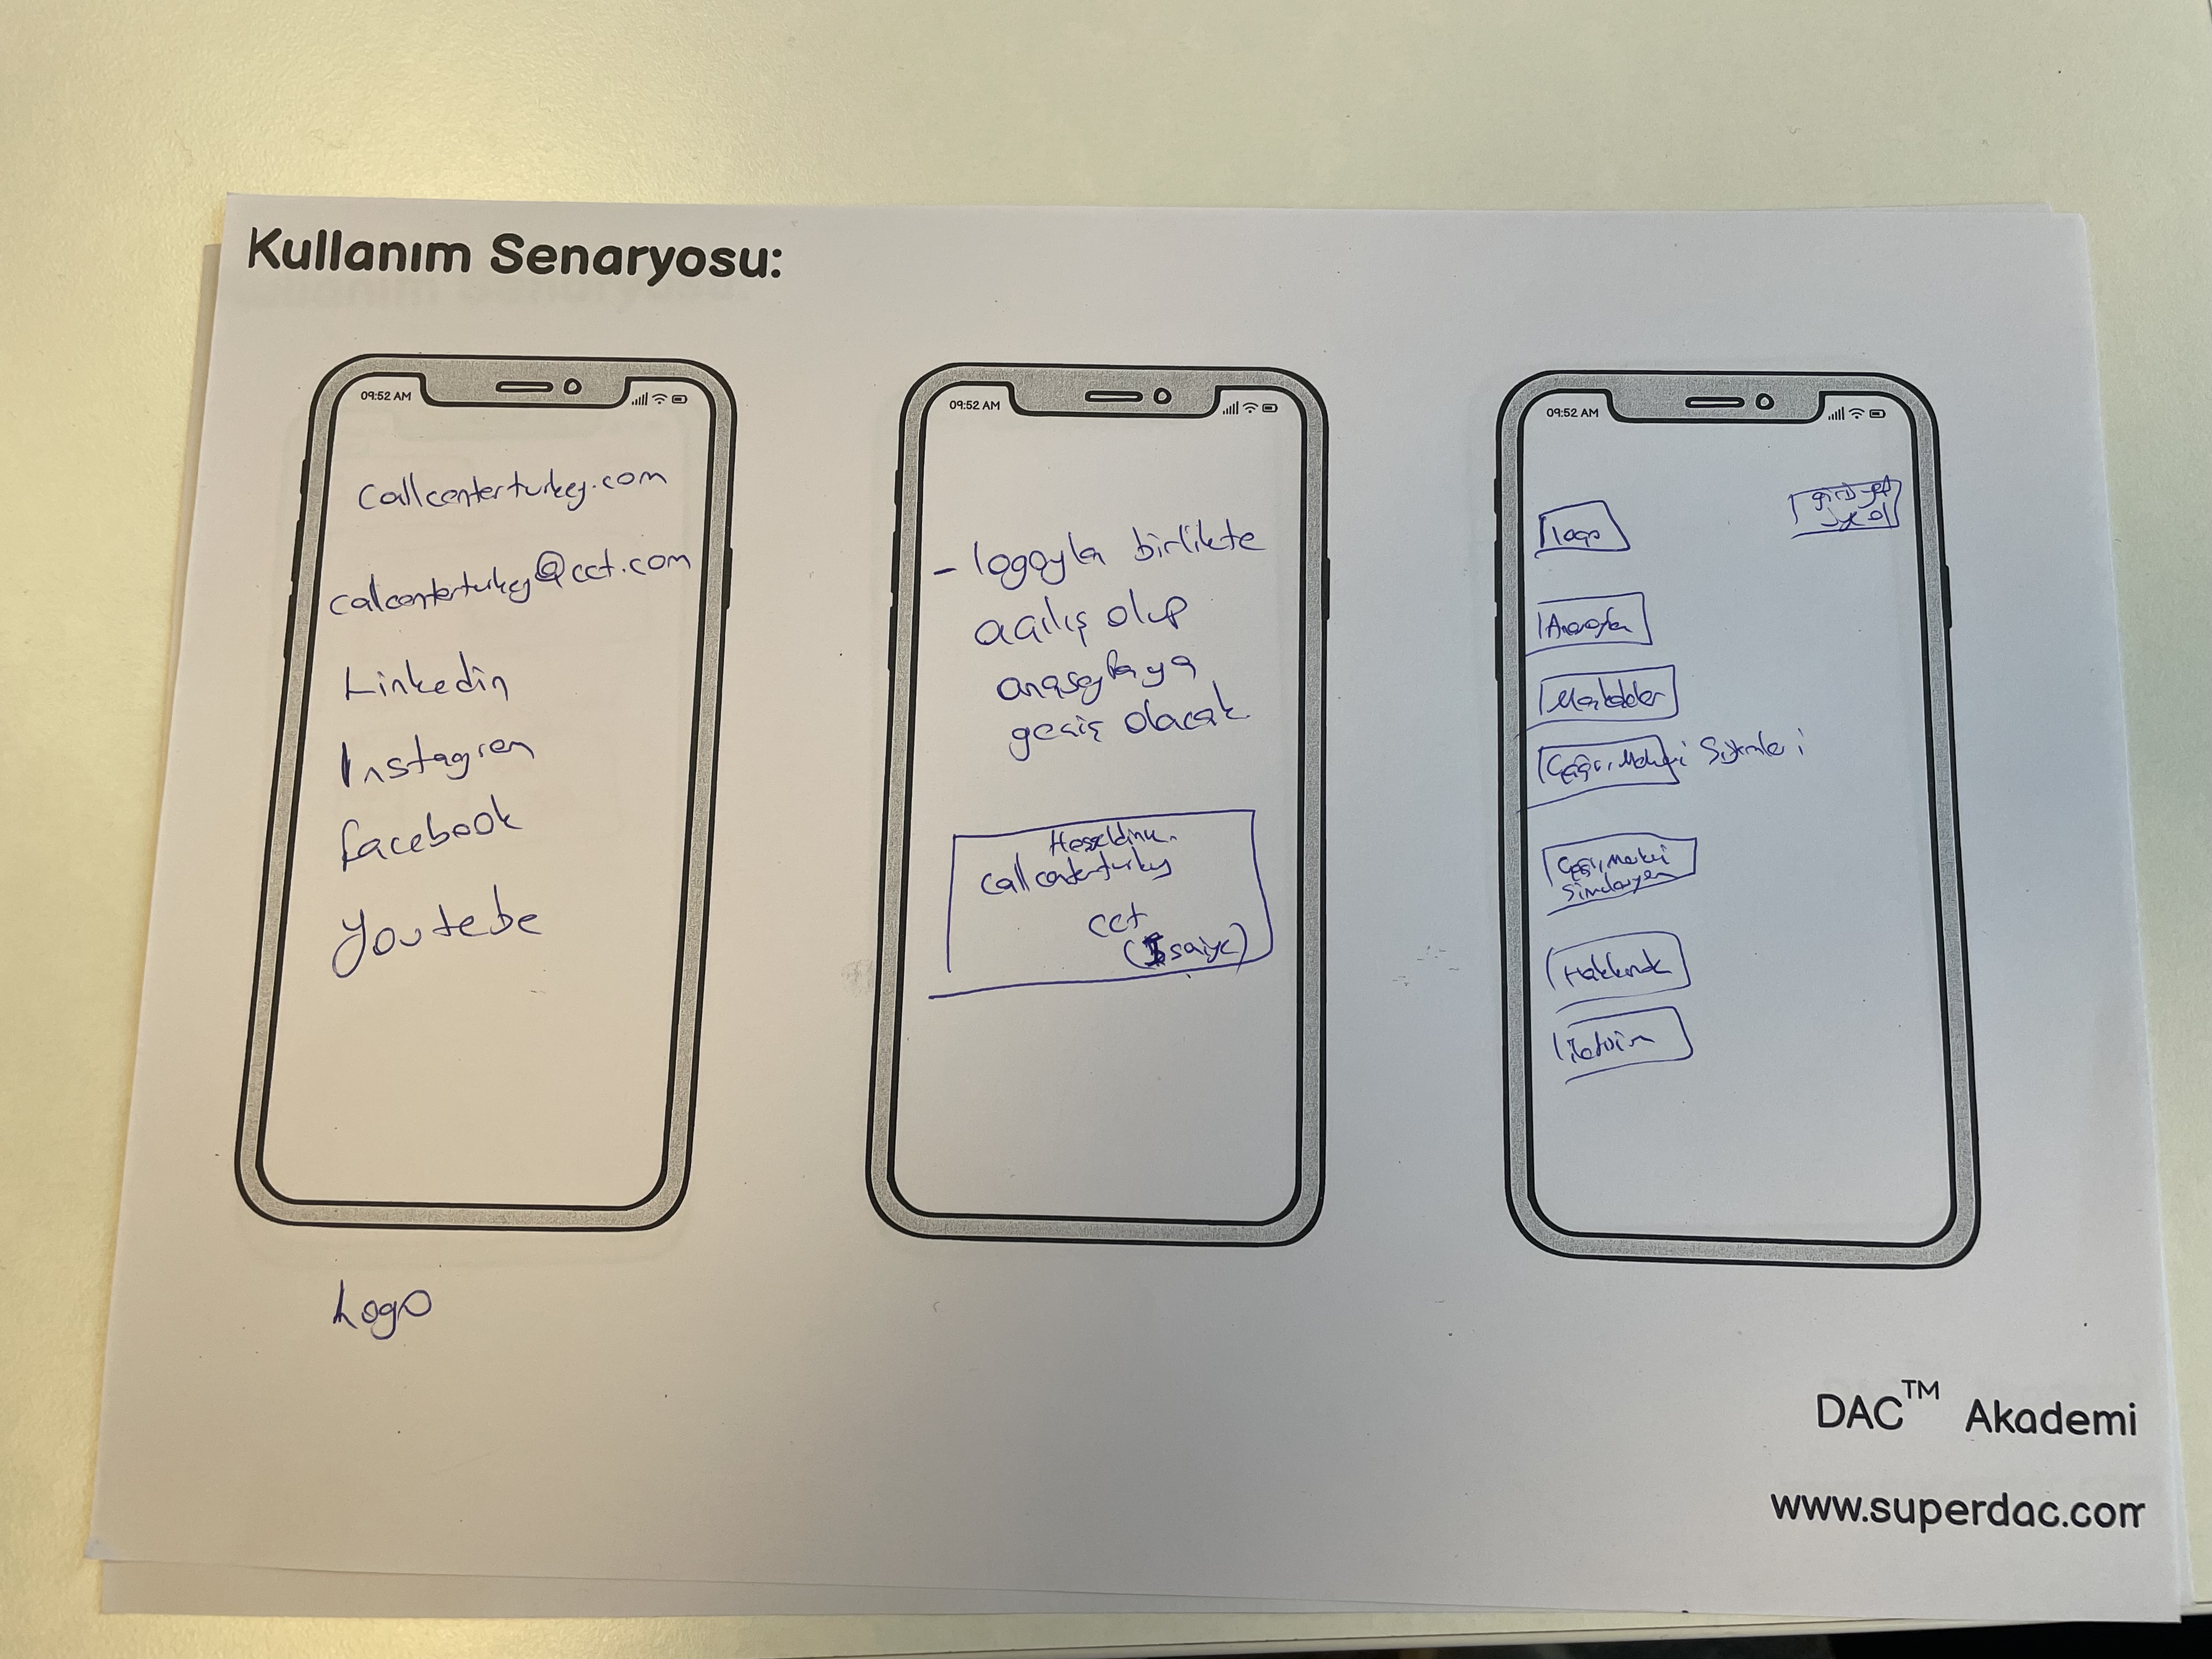 Kullanım Senaryosu:
09:52 AM
callcenterturkey.com
calcentertukey@cct.com
Linkedin
Instagram
facebook
Youtebe
Logo
09:52 AM
- logoyla birlikte
açılış olup
anasayfaya
geçiş olacak
Hoşgeldiniz.
Call centerturkey
cct
09:52 AM
logo
giriş yap
Anasayfa
Makaleler
Çağrı Merkezi Sistemleri
Çağrı Merkezi
Simülasyon
Hakkında
İletişim
DAC™ Akademi
www.superdac.com